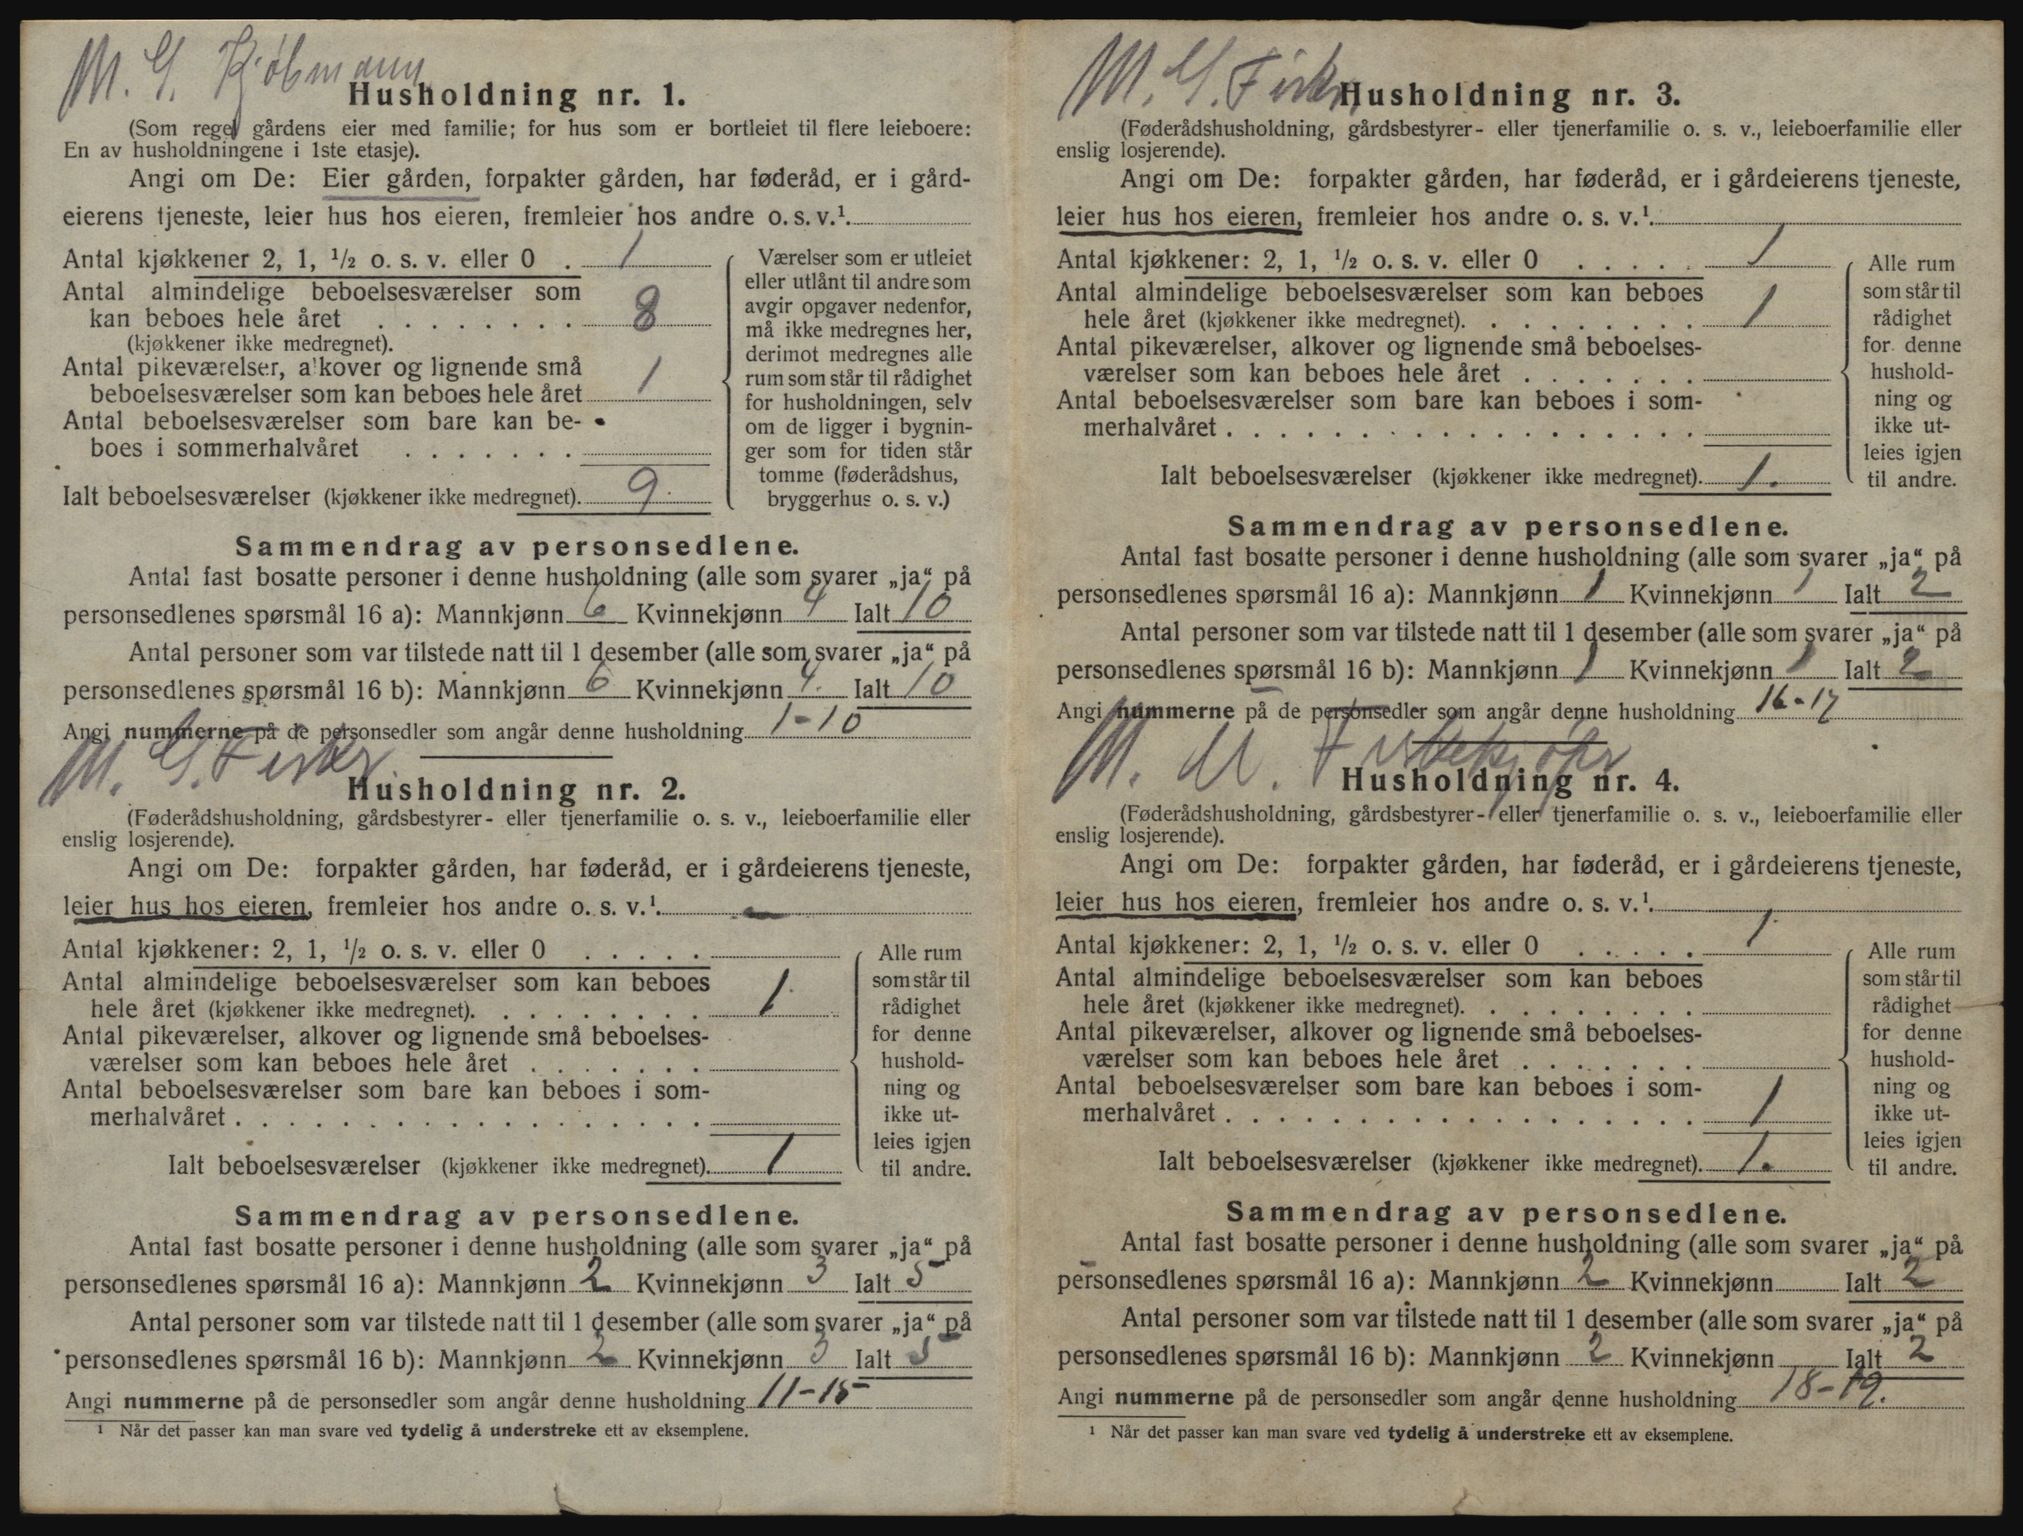 M. G. Kjøbmann
Husholdning nr. 1.
(Som regel gårdens eier med familie; for hus som er bortleiet til flere leieboere:
En av husholdningene i 1ste etasje).
Angi om De: Eier gården, forpakter gården, har føderåd, er i gård-
eierens tjeneste, leier hus hos eieren, fremleier hos andre o. s. v.¹.
Antal kjøkkener 2, 1, ½ o. s. v. eller 0 . 1
Antal almindelige beboelsesværelser som
kan beboes hele året . . . . . . . . 8
(kjøkkener ikke medregnet).
Antal pikeværelser, alkover og lignende små
beboelsesværelser som kan beboes hele året 1
Antal beboelsesværelser som bare kan be-
boes i sommerhalvåret . . . . . . .
Ialt beboelsesværelser (kjøkkener ikke medregnet). 9.
Værelser som er utleiet
eller utlånt til andre som
avgir opgaver nedenfor,
må ikke medregnes her,
derimot medregnes alle
rum som står til rådighet
for husholdningen, selv
om de ligger i bygnin-
ger som for tiden står
tomme (føderådshus,
bryggerhus o. s. v.)
Sammendrag av personsedlene.
Antal fast bosatte personer i denne husholdning (alle som svarer „ja“ på
personsedlenes spørsmål 16 a): Mannkjønn 6 Kvinnekjønn 4 Ialt 10
Antal personer som var tilstede natt til 1 desember (alle som svarer „ja“ på
personsedlenes spørsmål 16 b): Mannkjønn 6 Kvinnekjønn 4. Ialt 10
Angi nummerne på de personsedler som angår denne husholdning 1-10
M. G. Fisker
Husholdning nr. 2.
(Føderådshusholdning, gårdsbestyrer- eller tjenerfamilie o. s. v., leieboerfamilie eller
enslig losjerende).
Angi om De: forpakter gården, har føderåd, er i gårdeierens tjeneste,
leier hus hos eieren, fremleier hos andre o. s. v.¹.
Antal kjøkkener: 2, 1, ½ o. s. v. eller 0 . . . . .
Antal almindelige beboelsesværelser som kan beboes
hele året (kjøkkener ikke medregnet). . . . . . . . . 1
Antal pikeværelser, alkover og lignende små beboelses-
værelser som kan beboes hele året . . . . . . .
Antal beboelsesværelser som bare kan beboes i som-
merhalvåret . . . . . . . . . . . . . . . . . .
Ialt beboelsesværelser (kjøkkener ikke medregnet). 1
Alle rum
som står til
rådighet
for denne
hushold-
ning og
ikke ut-
leies igjen
til andre.
Sammendrag av personsedlene.
Antal fast bosatte personer i denne husholdning (alle som svarer „ja“ på
personsedlenes spørsmål 16 a): Mannkjønn 2 Kvinnekjønn 3 Ialt 5
Antal personer som var tilstede natt til 1 desember (alle som svarer „ja“ på
personsedlenes spørsmål 16 b): Mannkjønn 2 Kvinnekjønn 3 Ialt 5
Angi nummerne på de personsedler som angår denne husholdning 11-15
¹ Når det passer kan man svare ved tydelig å understreke ett av eksemplene.
M. G. Fisker
Husholdning nr. 3.
(Føderådshusholdning, gårdsbestyrer- eller tjenerfamilie o. s. v., leieboerfamilie eller
enslig losjerende).
Angi om De: forpakter gården, har føderåd, er i gårdeierens tjeneste,
leier hus hos eieren, fremleier hos andre o. s. v.¹.
Antal kjøkkener: 2, 1, ½ o. s. v. eller 0 . . . . . 1
Antal almindelige beboelsesværelser som kan beboes
hele året (kjøkkener ikke medregnet). . . . . . . . . 1
Antal pikeværelser, alkover og lignende små beboelses-
værelser som kan beboes hele året . . . . . . .
Antal beboelsesværelser som bare kan beboes i som-
merhalvåret . . . . . . . . . . . . . . . . . .
Ialt beboelsesværelser (kjøkkener ikke medregnet). 1.
Alle rum
som står til
rådighet
for denne
hushold-
ning og
ikke ut-
leies igjen
til andre.
Sammendrag av personsedlene.
Antal fast bosatte personer i denne husholdning (alle som svarer „ja“ på
personsedlenes spørsmål 16 a): Mannkjønn 1 Kvinnekjønn 1 Ialt 2
Antal personer som var tilstede natt til 1 desember (alle som svarer „ja“ på
personsedlenes spørsmål 16 b): Mannkjønn 1 Kvinnekjønn 1 Ialt 2
Angi nummerne på de personsedler som angår denne husholdning 16-17
M. U. Fiskekjøper
Husholdning nr. 4.
(Føderådshusholdning, gårdsbestyrer- eller tjenerfamilie o. s. v., leieboerfamilie eller
enslig losjerende).
Angi om De: forpakter gården, har føderåd, er i gårdeierens tjeneste,
leier hus hos eieren, fremleier hos andre o. s. v.¹.
Antal kjøkkener: 2, 1, ½ o. s. v. eller 0 . . . . . 1
Antal almindelige beboelsesværelser som kan beboes
hele året (kjøkkener ikke medregnet). . . . . . . . .
Antal pikeværelser, alkover og lignende små beboelses-
værelser som kan beboes hele året . . . . . . .
Antal beboelsesværelser som bare kan beboes i som-
merhalvåret . . . . . . . . . . . . . . . . . . 1
Ialt beboelsesværelser (kjøkkener ikke medregnet). 1.
Alle rum
som står til
rådighet
for denne
hushold-
ning og
ikke ut-
leies igjen
til andre.
Sammendrag av personsedlene.
Antal fast bosatte personer i denne husholdning (alle som svarer „ja“ på
personsedlenes spørsmål 16 a): Mannkjønn 2 Kvinnekjønn Ialt 2
Antal personer som var tilstede natt til 1 desember (alle som svarer „ja“ på
personsedlenes spørsmål 16 b): Mannkjønn 2 Kvinnekjønn Ialt 2
Angi nummerne på de personsedler som angår denne husholdning 18-19.
¹ Når det passer kan man svare ved tydelig å understreke ett av eksemplene.